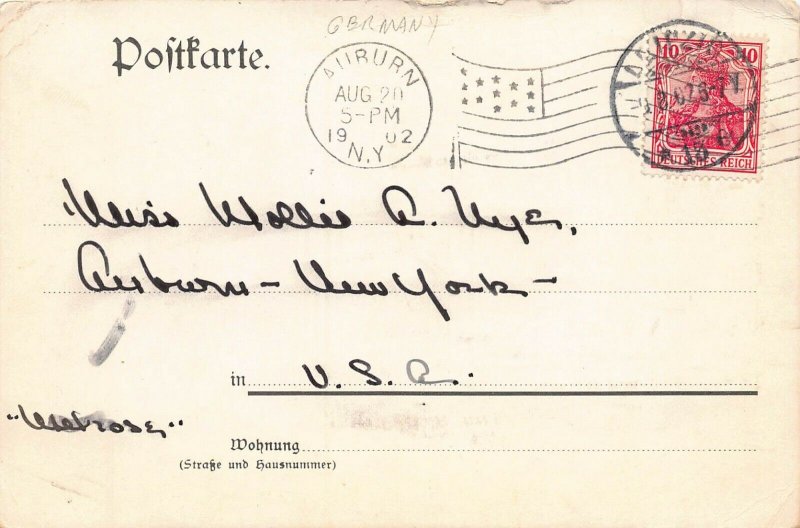 GERMANY
Postkarte.
AUBURN
AUG 20
5-PM
1902
N.Y
10 10
DEUTSCHES REICH
Miss Mollie A. Nye,
Auburn - New York -
in U. S. A.
"Melrose,"
Wohnung
(Straße und Hausnummer)